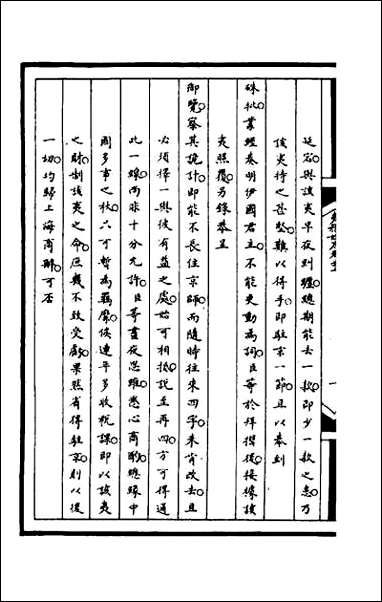 延宕與該夷早夜糾纏總期能去一款即少一款之患乃
該夷持之甚堅難以得手即駐京一節且以奉到
硃批業經奏明伊國君主不能更動為詞臣等於拜摺後接據該
夷照覆另錄恭呈
御覽察其詭計即能不長住京師而隨時往來四字未肯改去且
必須擇一與彼有益之處始可相抵說至再四方可得通
此一線而非十分允許臣等晝夜思維悉心商酌總緣中
國多事之秋只可暫為羈縻俟連年多收稅課即以該夷
之財制該夷之命庶幾不致受虧果然省得駐京則以後
一切均歸上海商辦可否